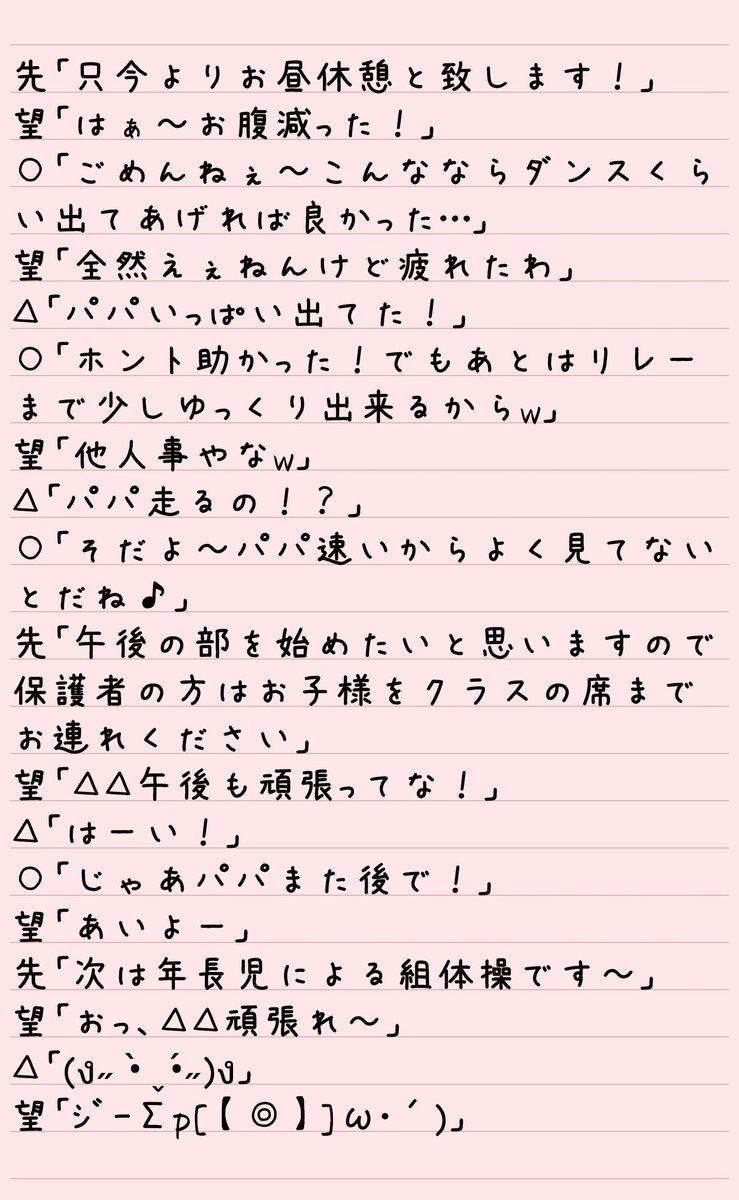 先「只今よりお昼休憩と致します！」
望「はぁ〜お腹減った！」
○「ごめんねぇ〜こんなならダンスくら
い出てあげれば良かった…」
望「全然えぇねんけど疲れたわ」
△「パパいっぱい出てた！」
○「ホント助かった！でもあとはリレー
まで少しゆっくり出来るからw」
望「他人事やなw」
△「パパ走るの！？」
○「そだよ〜パパ速いからよく見てない
とだね♪」
先「午後の部を始めたいと思いますので
保護者の方はお子様をクラスの席まで
お連れください」
望「△△午後も頑張ってな！」
△「はーい！」
○「じゃあパパまた後で！」
望「あいよー」
先「次は年長児による組体操です〜」
望「おっ、△△頑張れ〜」
△「(ง˶•̀ •́˶)ง」
望「ｼﾞｰΣp[【◎】]ω・´)」